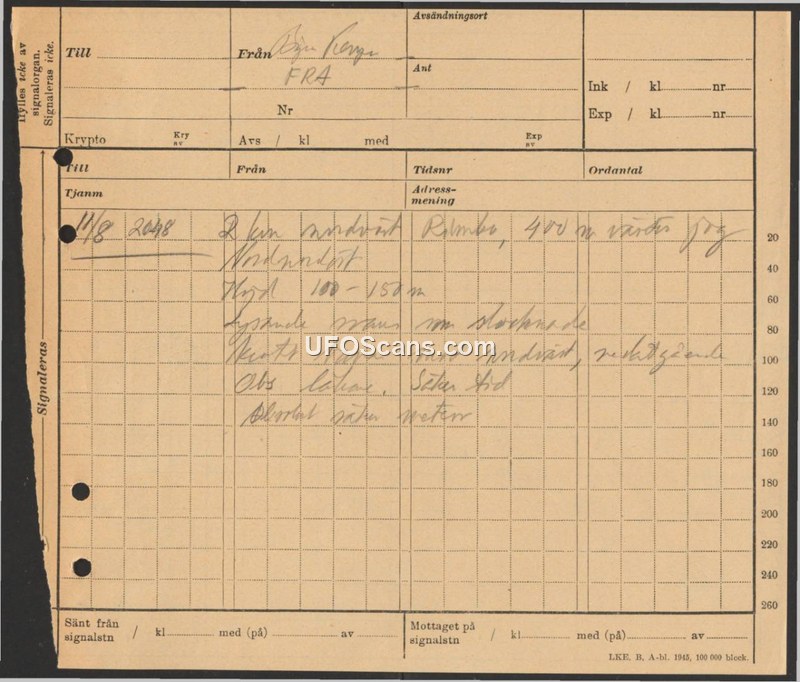 Fylles icke av
signalorgan.
Signaleras icke.
Till
Från
FRA
Nr
Avsändningsort
Ant
Ink / kl nr
Exp / kl nr
Krypto Kry av
Avs / kl med Exp av
Till Från Tidsnr Ordantal
Tjanm Adress-
mening
11/8 2048 2 km nordväst Rimbo, 400 m väster jag
Nordnordöst
Höjd 100-150 m
Lysande svans som slocknade
nordväst, nedåtgående
Obs läkare. Säker tid
Absolut säker meteor
UFOScans.com
Signaleras
20
40
60
80
100
120
140
160
180
200
220
240
260
Sänt från
signalstn / kl med (på) av
Mottaget på
signalstn / kl med (på) av
LKE. B, A-bl. 1945, 100 000 block.